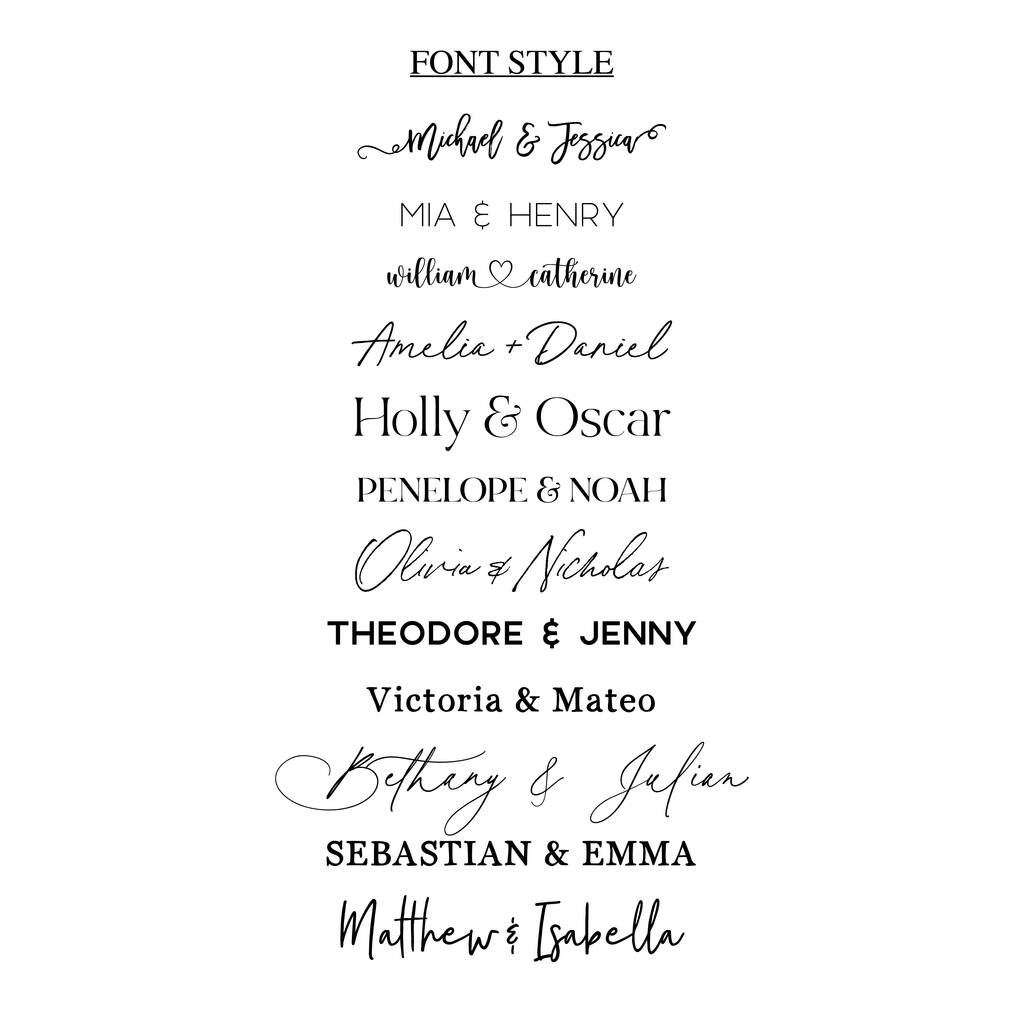 FONT STYLE
Michael & Jessica
MIA & HENRY
william♡catherine
Amelia + Daniel
Holly & Oscar
PENELOPE & NOAH
Olivia & Nicholas
THEODORE & JENNY
Victoria & Mateo
Bethany & Julian
SEBASTIAN & EMMA
Matthew & Isabella